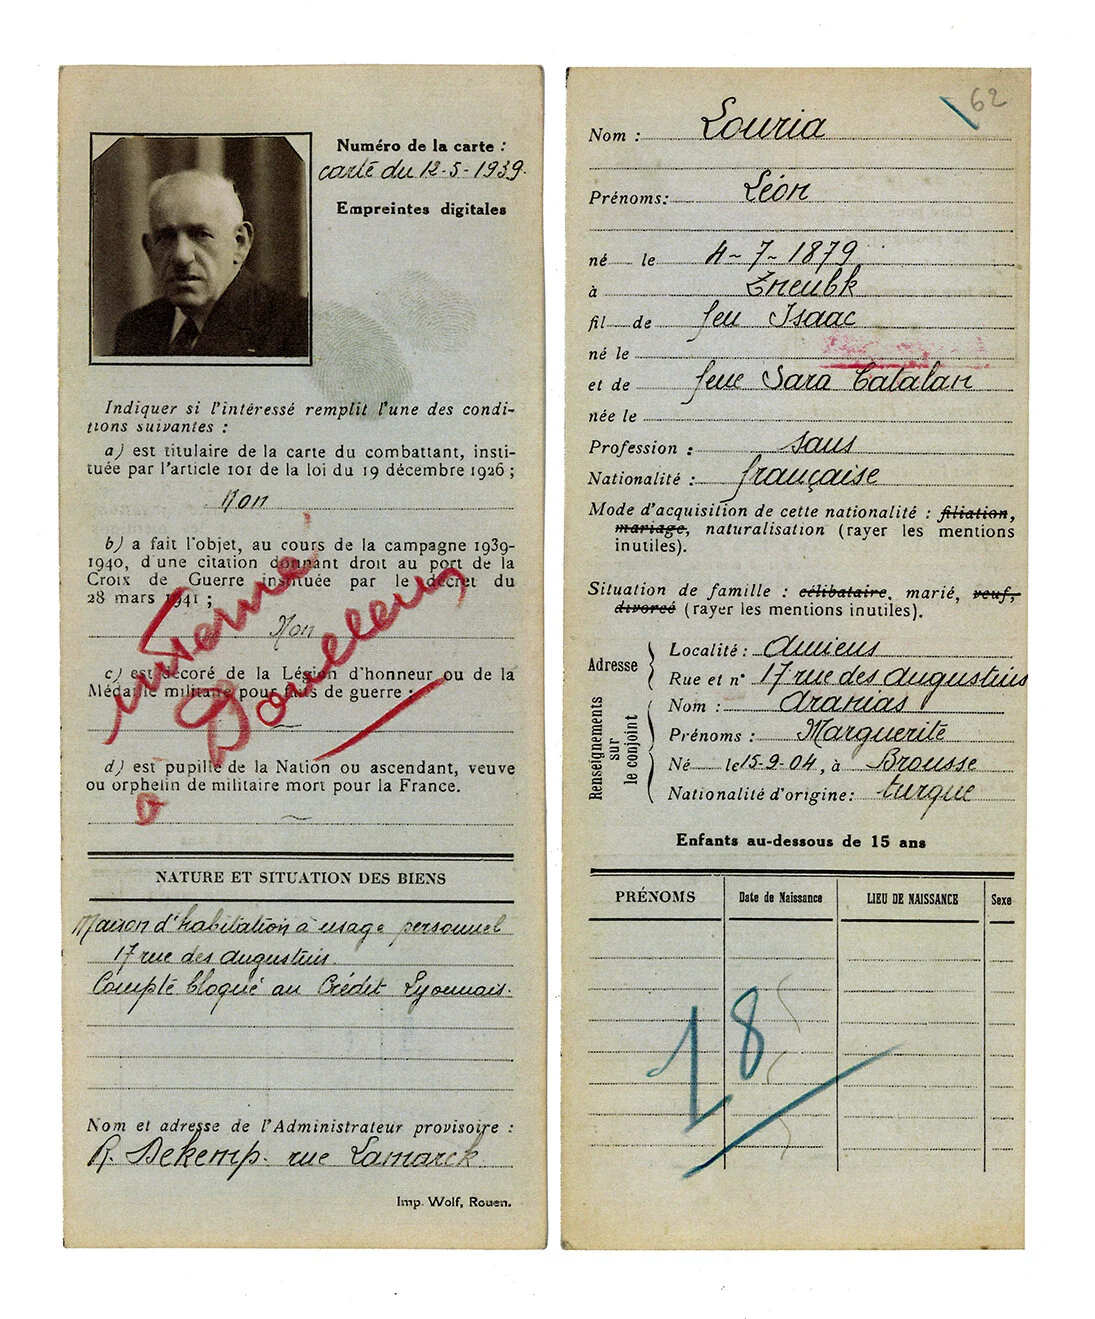 Numéro de la carte :
carte du 12-5-1939.
Empreintes digitales
Indiquer si l'intéressé remplit l'une des condi-
tions suivantes :
a) est titulaire de la carte du combattant, insti-
tuée par l'article 101 de la loi du 19 décembre 1926 ;
Non
b) a fait l'objet, au cours de la campagne 1939-
1940, d'une citation donnant droit au port de la
Croix de Guerre instituée par le décret du
28 mars 1941 ;
Non
interné
c) est décoré de la Légion d'honneur ou de la
Médaille militaire pour faits de guerre :
d) est pupille de la Nation ou ascendant, veuve
ou orphelin de militaire mort pour la France.
NATURE ET SITUATION DES BIENS
Maison d'habitation à usage personnel
17 rue des Augustins.
Compte bloqué au Crédit Lyonnais.
Nom et adresse de l'Administrateur provisoire :
R. Dekemp. rue Lamarck
Imp. Wolf, Rouen.
62
Nom : Louria
Prénoms: Léon
né le 4-7-1879
à
fil de feu Isaac
né le
et de feue Sara Catalan
née le
Profession : sans
Nationalité : française
Mode d'acquisition de cette nationalité : filiation,
mariage, naturalisation (rayer les mentions
inutiles).
Situation de famille : célibataire, marié, veuf,
divorcé (rayer les mentions inutiles).
Adresse
Localité : Amiens
Rue et n° 17 rue des Augustins
Renseignements
sur
le conjoint
Nom : Aranias
Prénoms : Marguerite
Né le 15-9-04, à Brousse
Nationalité d'origine: turque
Enfants au-dessous de 15 ans
PRÉNOMS Date de Naissance LIEU DE NAISSANCE Sexe
18